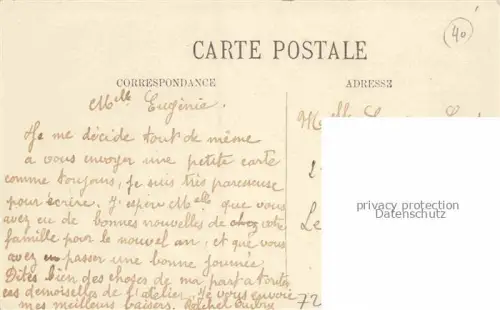 40
CARTE POSTALE
CORRESPONDANCE
ADRESSE
Melle Eugénie.
Je me décide tout de même
a vous envoyer une petite carte
comme toujours, je suis très paresseuse
pour écrire. J'espère Melle que vous
avez eu de bonnes nouvelles de chez votre
famille pour le nouvel an, et que vous
avez en passer une bonne journée
Dites bien des choses de ma part a toutes
ces demoiselles de l'atelier. Je vous envoie
mes meilleurs baisers.
Melle
Le
72
privacy protection
Datenschutz